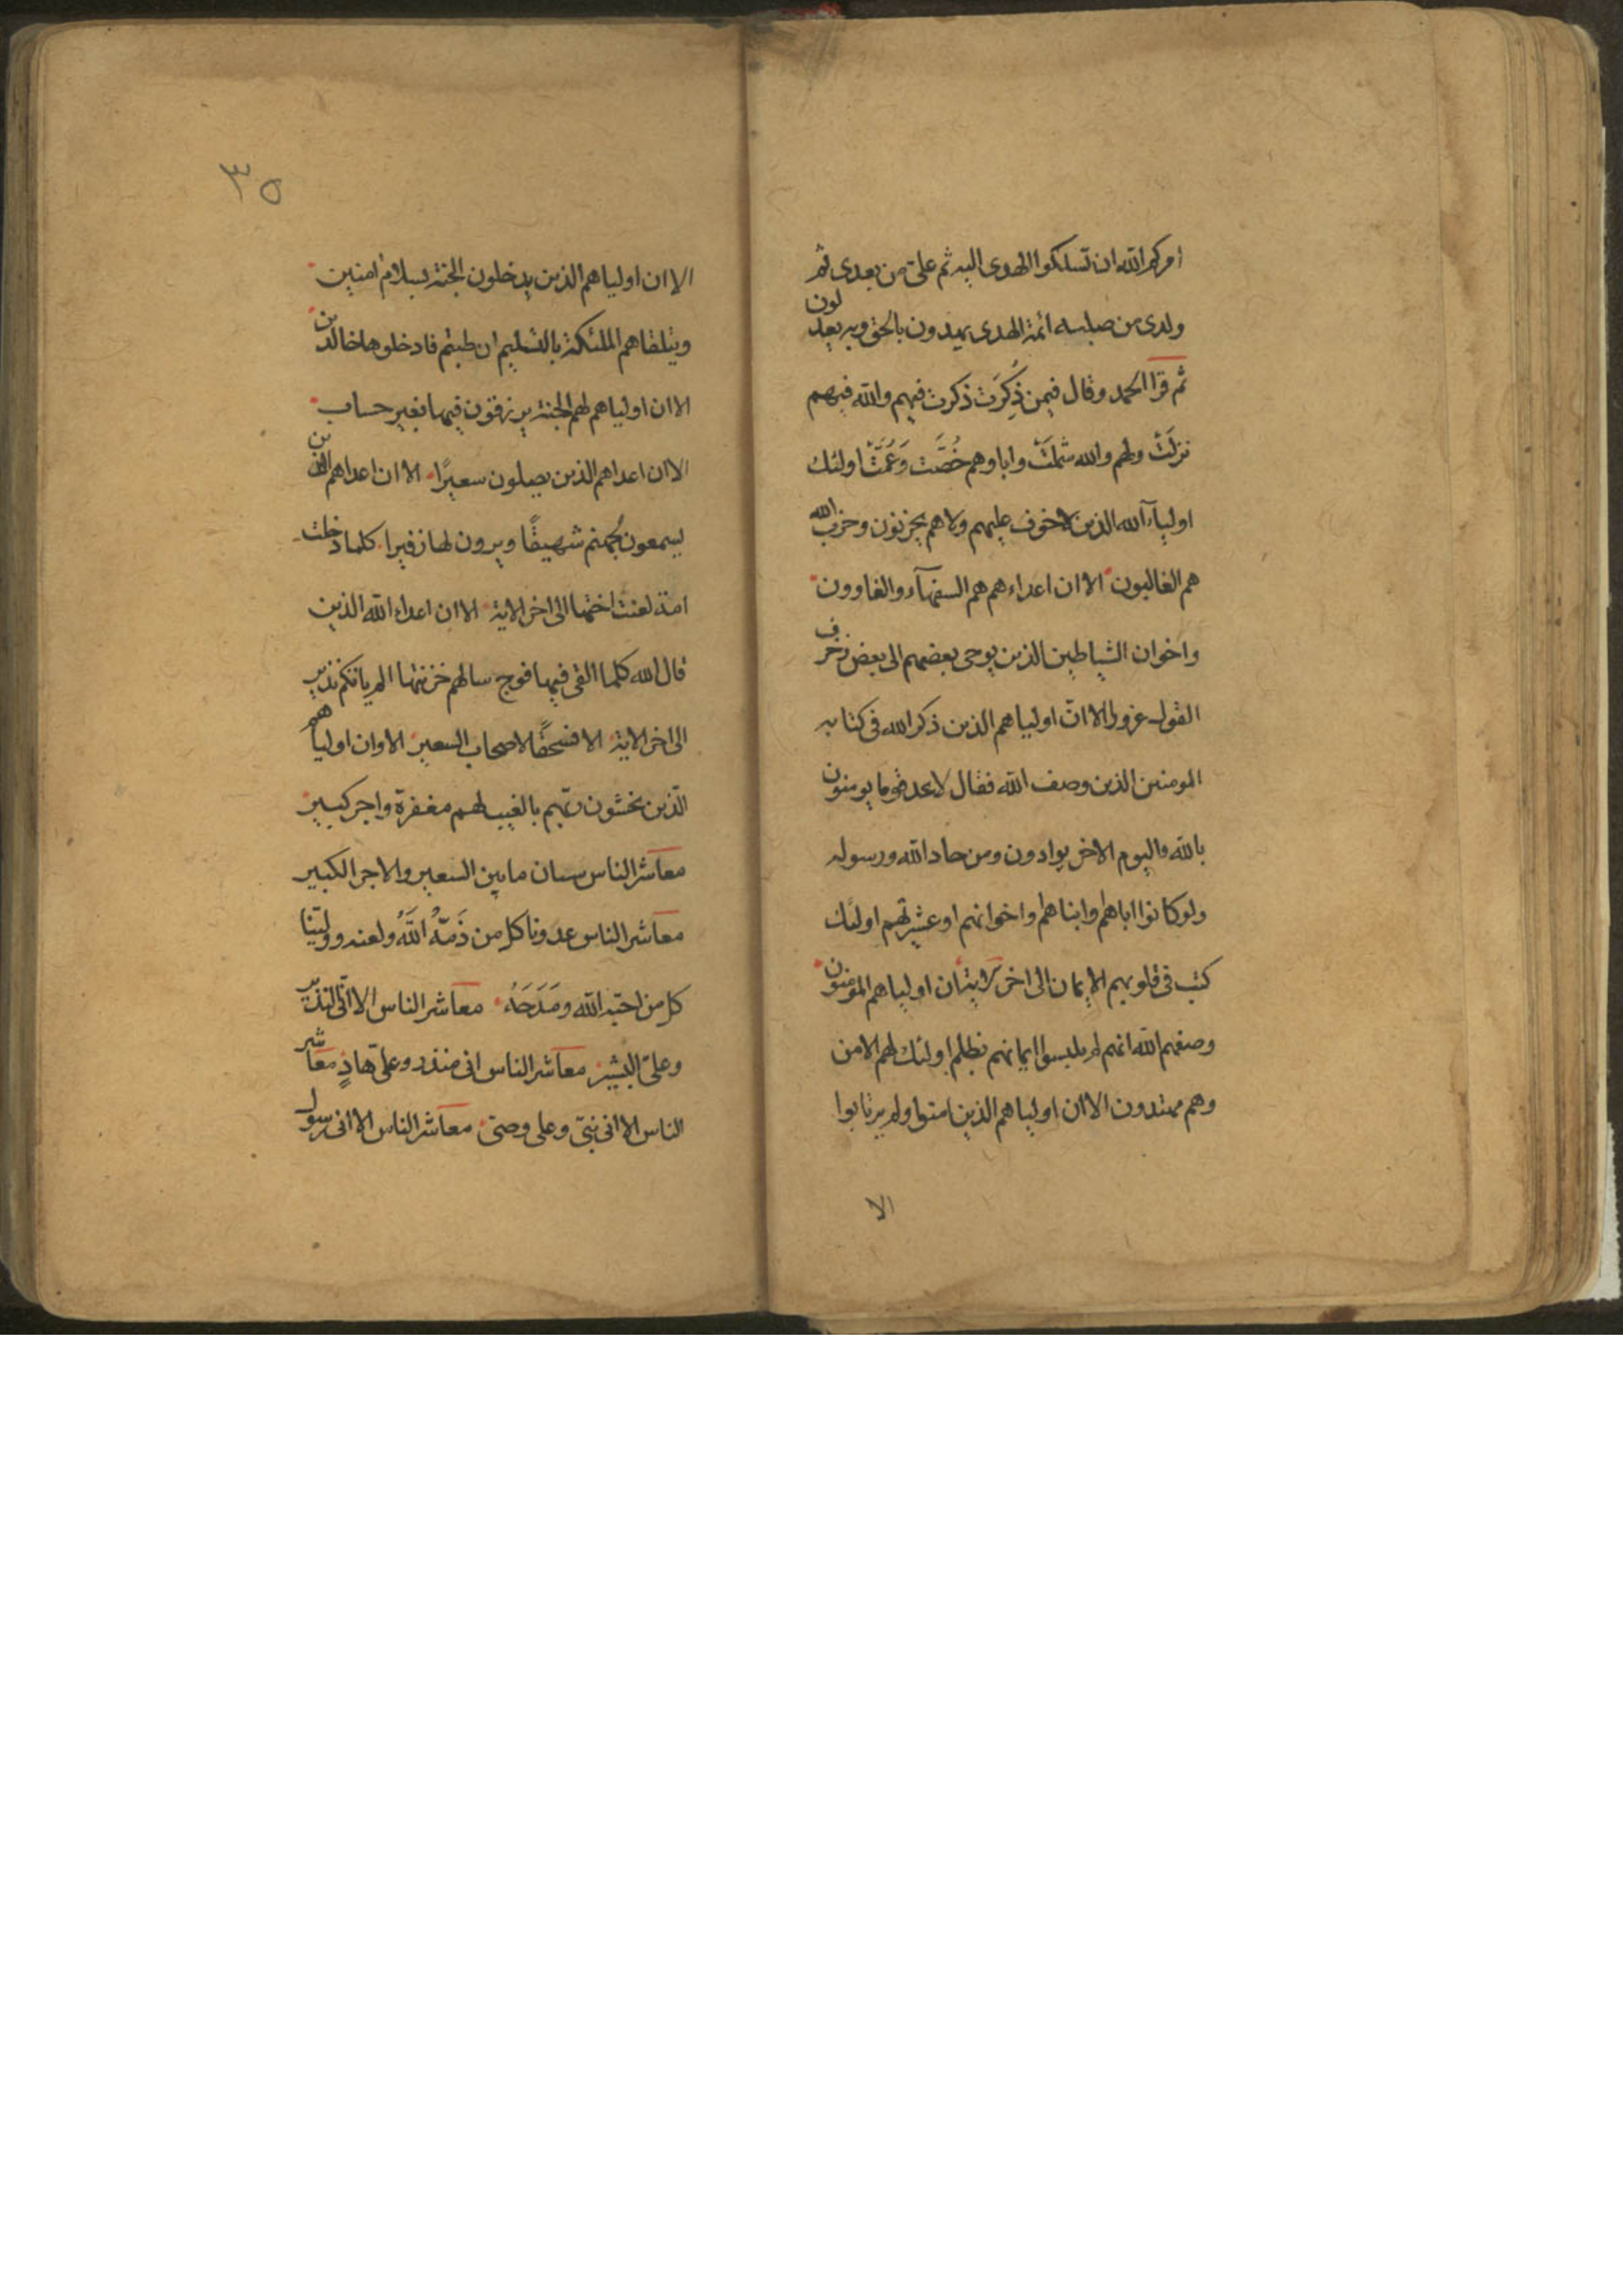 امركم الله ان تسلكوا الهدى اليه ثم على من بعدى ثم
ولدى من صلبه ائمة الهدى يهدون بالحق وبه يعدلون
ثم قرا الحمد وقال فيمن ذُكِرَت ذكرت فيهم والله فيهم
نزلَتْ ولهم والله شملَتْ واباوهم خُصَّت وَعَمَّتْ اولئك
اوليآء الله الذين لاخوف عليهم ولا هم يحزنون وحزب الله
هم الغالبون الا ان اعداءهم هم السفهآء والغاوون
واخوان الشياطين الذين يوحى بعضهم الى بعض زخرف
القول غرورا الا انّ اولياهم الذين ذكر الله فى كتابه
المومنين الذين وصف الله فقال لا تجد قوما يومنون
بالله واليوم الاخر يوادون ومن حاد الله ورسوله
ولو كانوا اباهم وابناهم واخوانهم او عشيرتهم اولئك
كتب فى قلوبهم الايمان الى اخر الاية ان اولياهم المومنون
وصفهم الله انهم لم يلبسوا ايمانهم بظلم اولئك لهم الامن
وهم مهتدون الا ان اولياهم الذين امنوا ولم يرتابوا
الا
٣٥
الا ان اولياهم الذين يدخلون الجنة بسلام امنين
ويتلقاهم الملئكة بالتسليم ان طبتم فادخلوها خالدين
الا ان اولياهم لهم الجنة يرزقون فيها بغير حساب
الا ان اعداهم الذين يصلون سعيرًا الا ان اعداهم الذين
يسمعون لجهنم شهيقًا ويرون لها زفيرا كلما دخلت
امة لعنت اختها الى اخر الاية الا ان اعداء الله الذين
قال الله كلما القى فيها فوج سالهم خزنتها الم ياتكم نذير
الى اخر الاية الا فسحقًا لاصحاب السعير الا وان اولياهم
الّذين يخشون ربّهم بالغيب لهم مغفرة واجر كبير
معاشر الناس ستان مابين السعير والاجر الكبير
معاشر الناس عدونا كل من ذَمّهُ اللَّهُ ولعنه ووليّنا
كل من احبّه الله ومَدَحَهُ معاشر الناس الا انّى النذير
وعلىّ البشير معاشر الناس انى منذر وعلىّ هادٍ معاشر
الناس الا انى نبىّ وعلى وصىّ معاشر الناس الا انى رسول